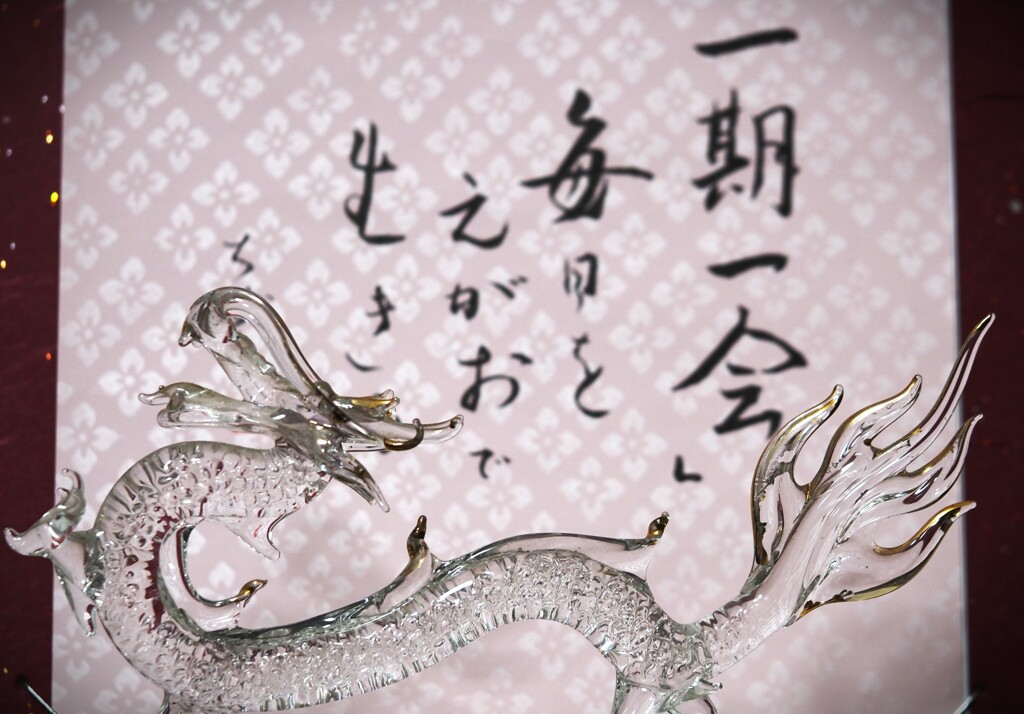 一期一会
毎日を
えがおで
生き